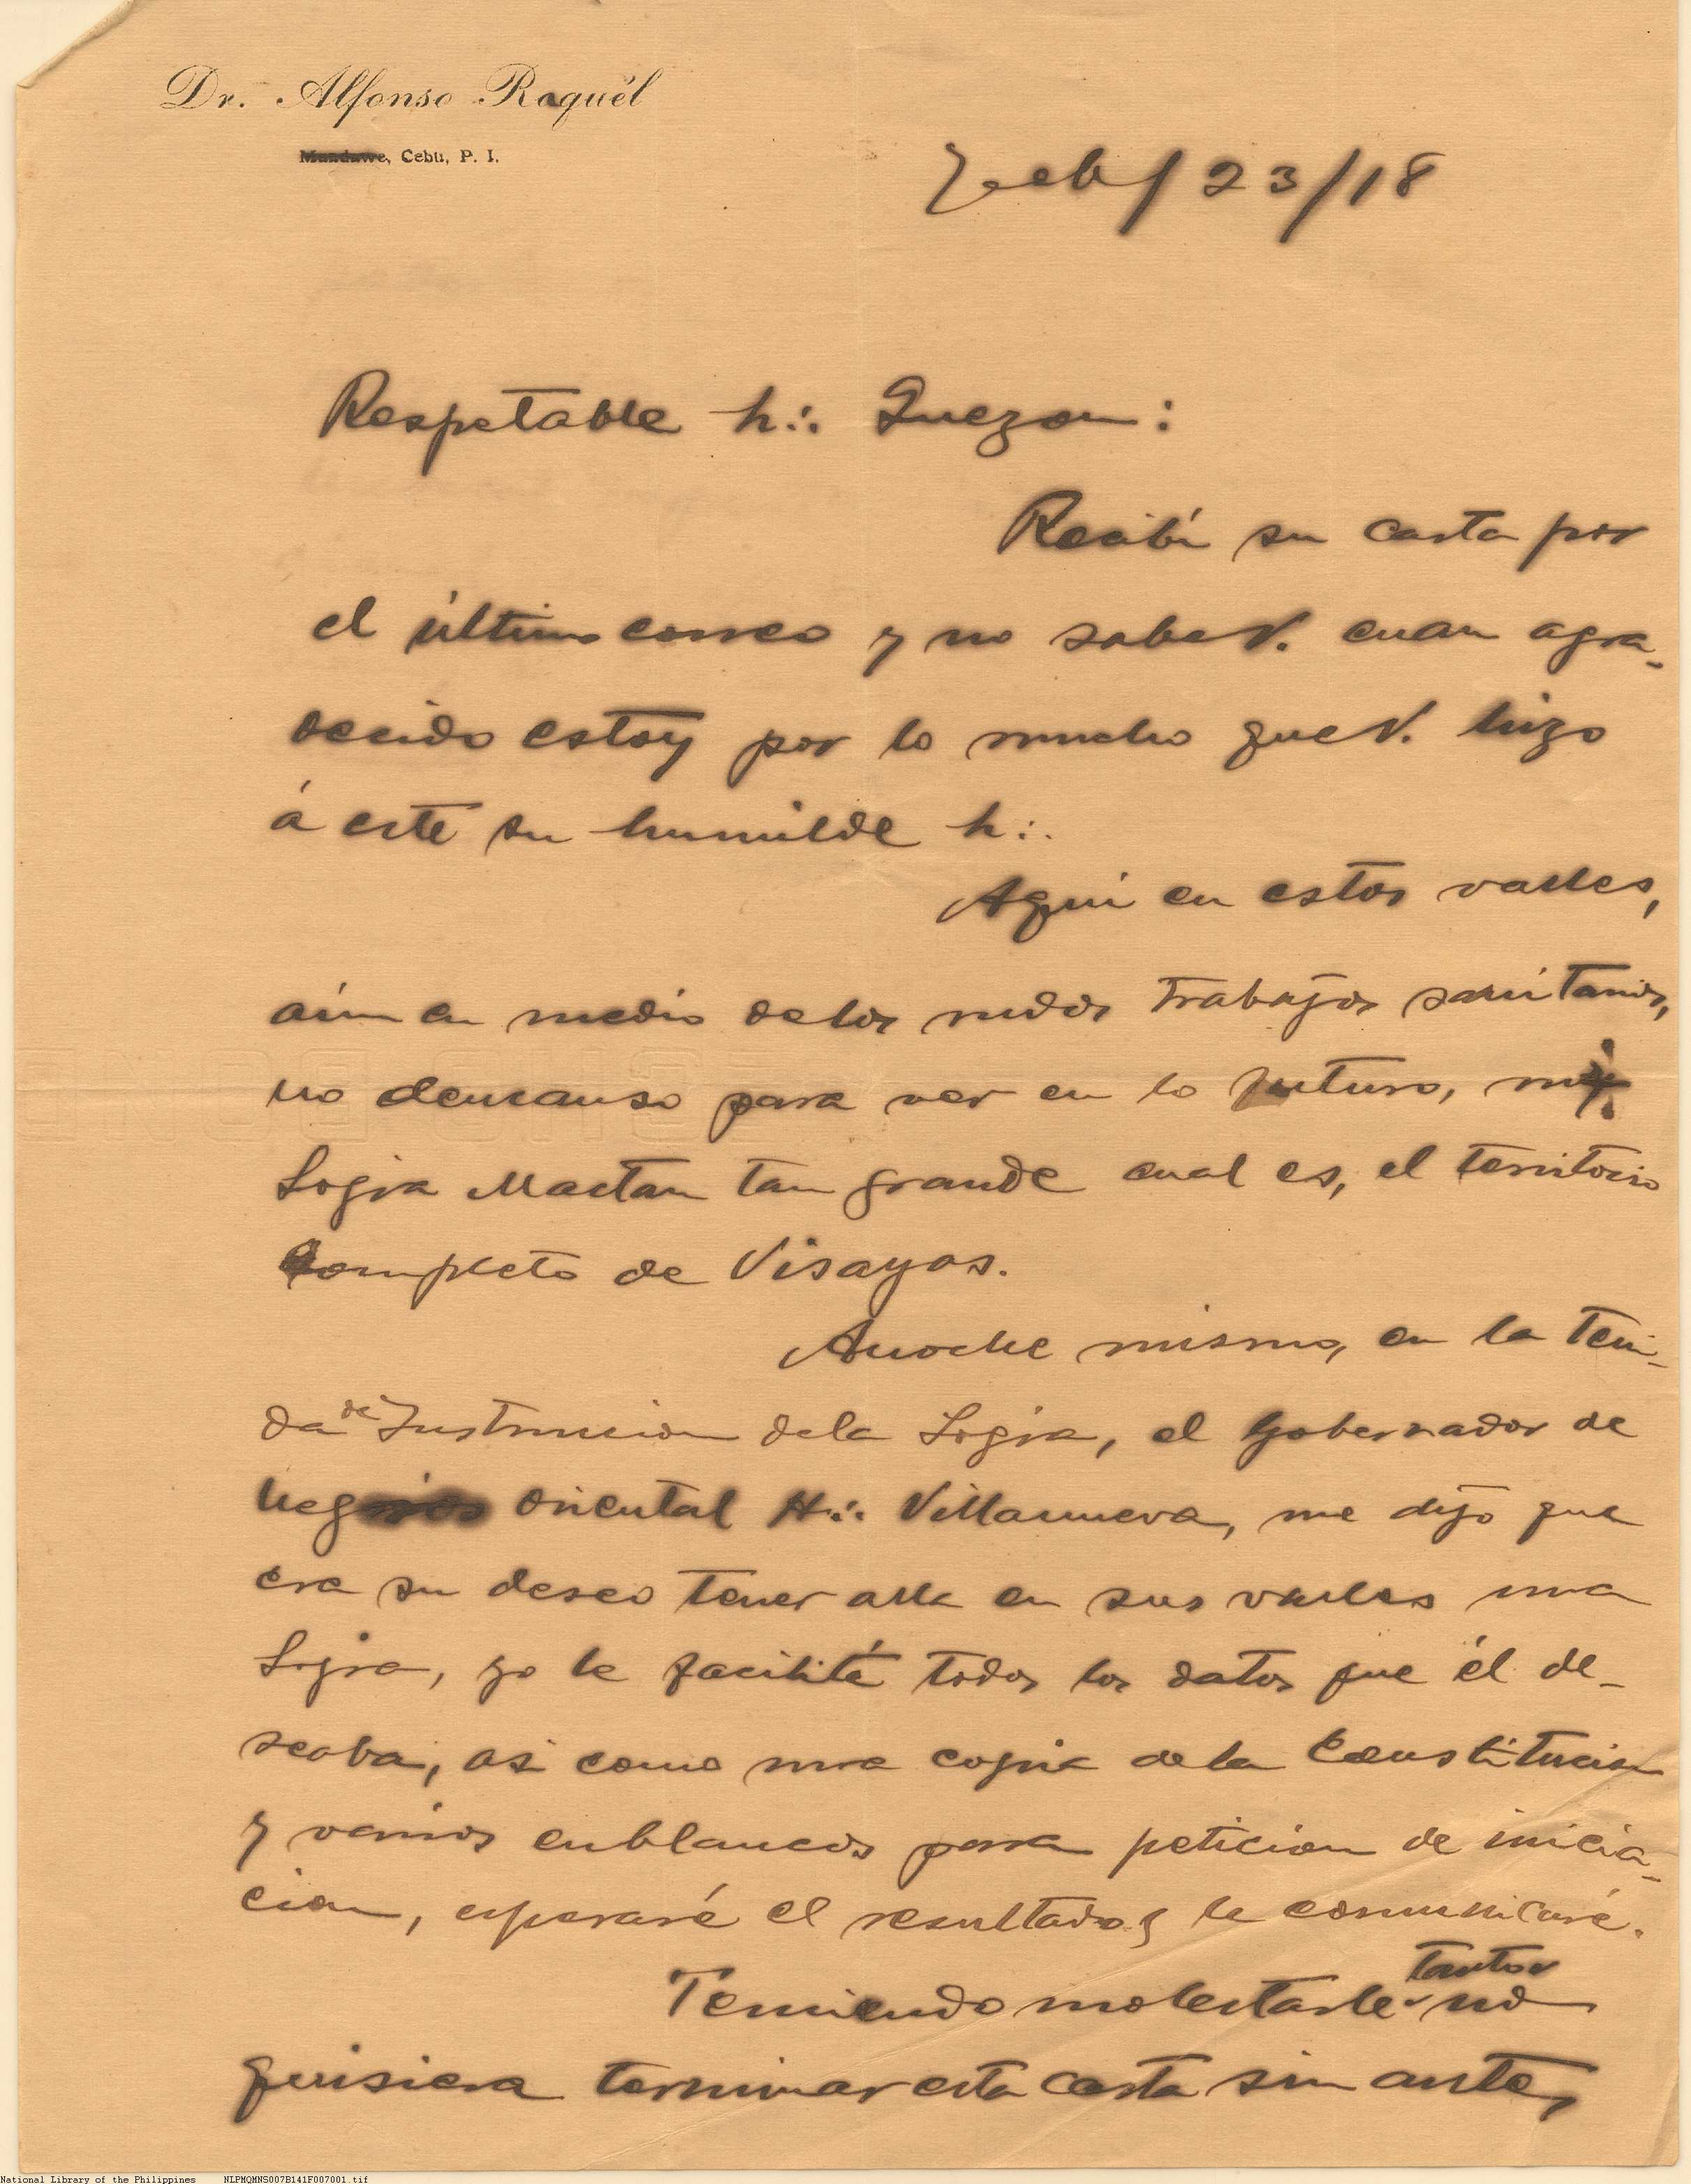 Dr. Alfonso Raquël
Mandawe, Cebu, P. I.
Feb/23/18
Respetable h∴ Quezon:
Recibí su carta por
el último correo y no sabe V. cuan agra-
decido estoy por lo mucho que V. hizo
á este su humilde h∴
Aqui en estos valles,
aún en medio de los rudos trabajos sanitarios,
no descanso para ver en lo futuro, mi
Logia Mactan tan grande cual es, el territorio
completo de Visayas.
Anoche mismo, en la Teni-
da de Instruccion de la Logia, el Gobernador de
Negros Oriental H∴ Villanueva, me dijo que
era su deseo tener alla en sus valles una
Logia, yo le facilité todos los datos que él de-
seaba, asi como una copia de la Constitucion
y varios enblancos para peticion de inicia-
cion, esperaré el resultado y le comunicaré.
Temiendo molestarle tanto no
quisiera terminar esta carta sin antes,
National Library of the Philippines NLPMQMNS007B141F007001.tif